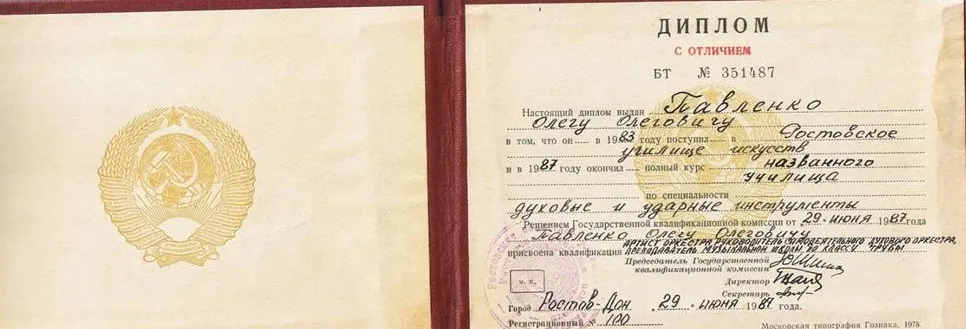 ДИПЛОМ
С ОТЛИЧИЕМ
БТ № 351487
Настоящий диплом выдан Павленко
Олегу Олеговичу
в том, что он в 1983 году поступил в Ростовское
училище искусств
и в 1987 году окончил полный курс названного
училища
по специальности
духовые и ударные инструменты
Решением Государственной квалификационной комиссии от 29 июня 1987 года
Павленко Олегу Олеговичу
присвоена квалификация артист оркестра, руководитель самодеятельного духового оркестра,
преподаватель музыкальной школы по классу трубы
Председатель Государственной
квалификационной комиссии
Директор
Секретарь
м. п.
Город Ростов-Дон 29 июня 1987 года
Регистрационный № 100
Московская типография Гознака. 1978.